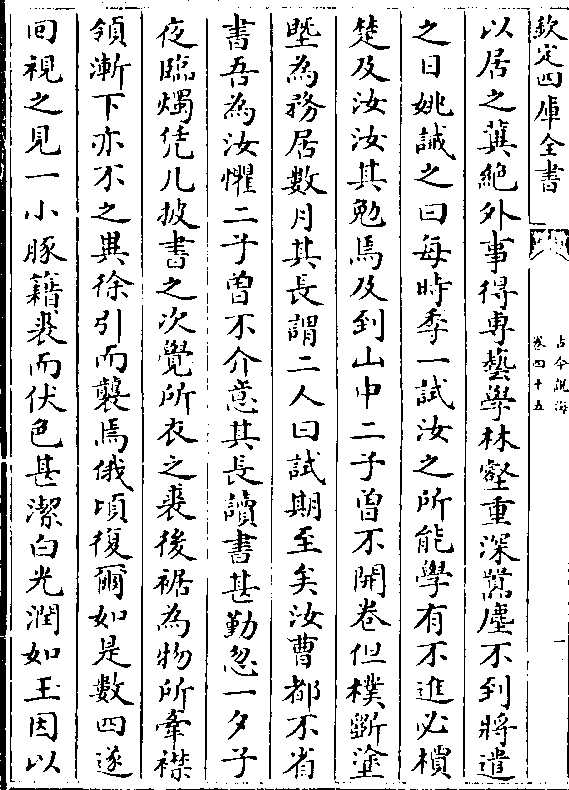 欽定四庫全書
古今說海
卷四十五
一
以居之冀絶外事得専藝學林壑重深囂塵不到將遣
之日姚誡之曰每時季一試汝之所能學有不進必檟
楚及汝汝其勉焉及到山中二子曽不開卷但樸斲塗
塈為務居數月其長謂二人曰試期至矣汝曹都不省
書吾為汝懼二子曽不介意其長讀書甚勤忽一夕子
夜臨燭凭几披書之次覺所衣之裘後裾為物所牽襟
領漸下亦不之異徐引而襲焉俄頃復爾如是數四遂
回視之見一小豚籍裘而伏色甚潔白光潤如玉因以